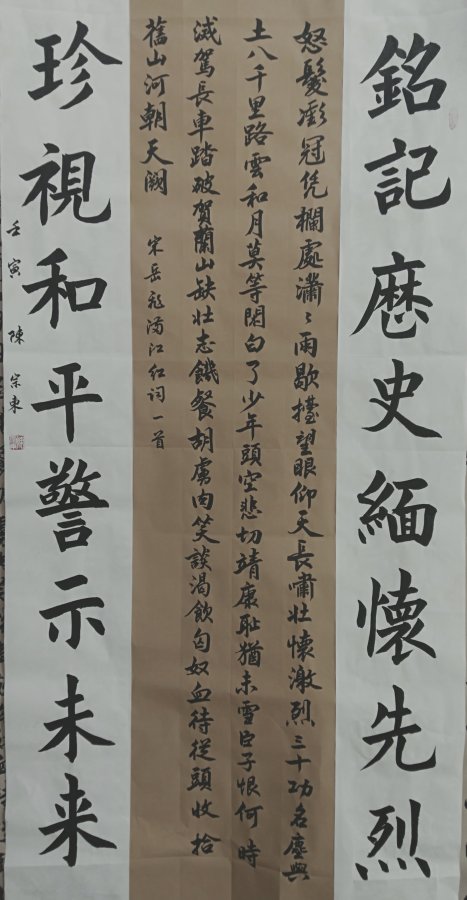 銘記歷史緬懷先烈
怒髮衝冠凭欄處瀟々雨歇擡望眼仰天長嘯壯懷激烈三十功名塵與
土八千里路雲和月莫等閑白了少年頭空悲切靖康恥猶未雪臣子恨何時
滅駕長車踏破賀蘭山缺壯志饑餐胡虜肉笑談渴飲匈奴血待從頭收拾
舊山河朝天闕
宋岳飛滿江紅词一首
珍視和平警示未来
壬寅 陳宗東